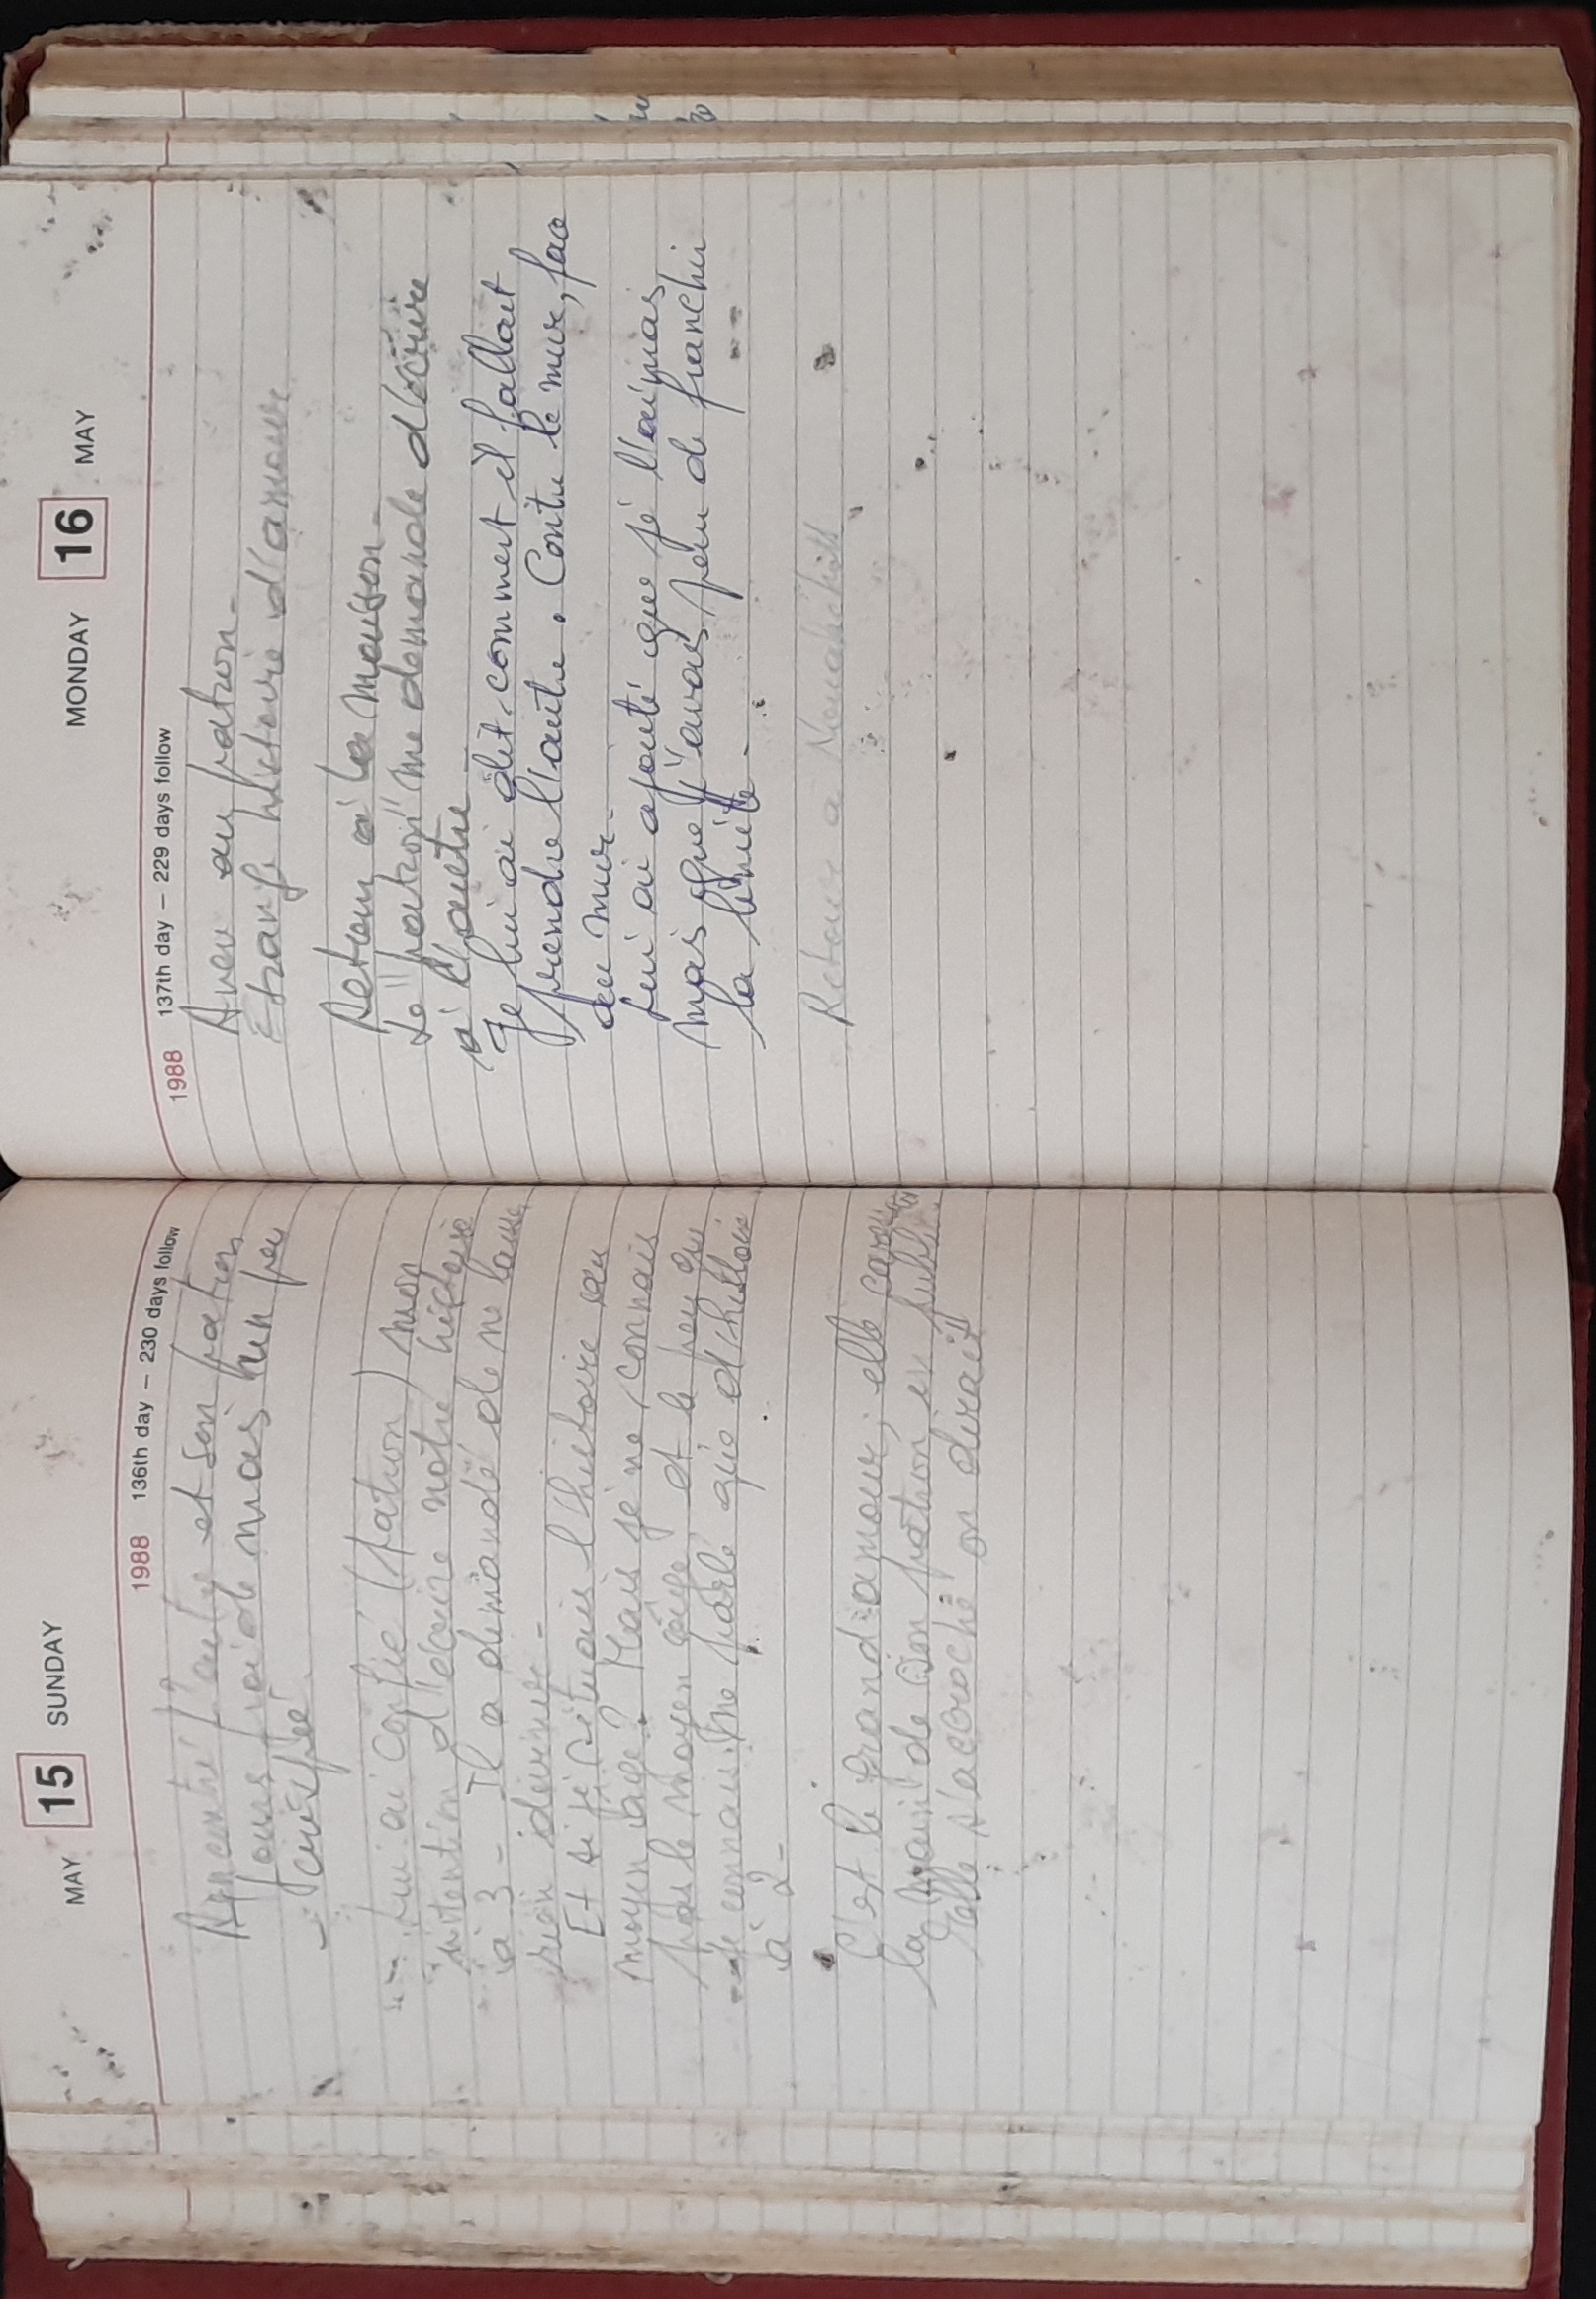 MAY 15 SUNDAY
1988 136th day – 230 days follow
Rencontré l'autre et son patron
pas froide mais hun peu
– crispée
– Lui ai confié (patron) mon
intention d'écrire notre histoire
à 3 – Il a demandé de ne
rien deviner –
Et si je situais l'histoire au
moyen âge? Mais je ne connais
pas le moyen âge et le peu que
je connais me parle que d'histoire
à 2 –
C'est le grand amour, elle
la main de son patron en public
Elle s'accroche on dirait
MONDAY 16 MAY
1988 137th day – 229 days follow
Aveu au patron –
Etrange histoire d'amour
Retour à la maison –
Le "patron" me demande d'écrire
à l'autre –
Je lui ai dit comment il fallait
prendre l'autre. Contre le mur, face
au mur –
Lui ai ajouté que je l'aimais
mais que j'avais peur de franchir
la limite –
Retour à Nouakchott